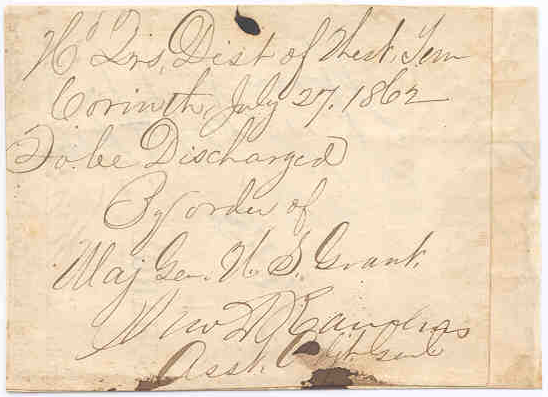 Hd Qrs, Dist of West. Ten
Corinth, July 27. 1862
To be Discharged
By order of
Maj Gen. U. S. Grant.
Asst. Adjt Genl